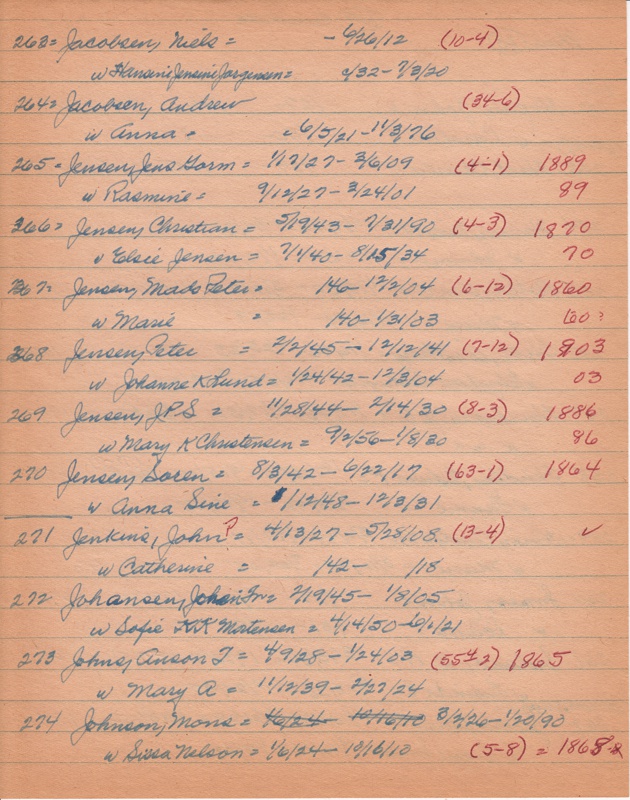 263 = Jacobsen, Niels = - 6/26/12 (10-4)
w Hansine Jensine Jorgensen = /32 - 7/3/20
264 = Jacobsen, Andrew (34-6)
w Anna = = 6/5/21 - 11/3/76
265 = Jensen, Jens Gorm = 1/17/27 - 3/6/09 (4-1) 1889
w Rasmine = 9/12/27 - 3/24/01 89
266 = Jensen, Christian = 5/19/43 - 7/31/90 (4-3) 1870
w Elsie Jensen = 7/1/40 - 8/15/34 70
267 = Jensen, Mads Peter = /46 - 12/2/04 (6-12) 1860
w Marie = /40 - 1/31/03 60?
268 Jensen, Peter = 2/2/45 - 12/12/41 (7-12) 1903
w Johanne K Lund = 1/24/42 - 12/3/04 03
269 Jensen, J.P.S = 11/28/44 - 2/14/30 (8-3) 1886
w Mary K Christensen = 9/2/56 - 1/8/30 86
270 Jensen, Soren = 8/3/42 - 6/22/17 (63-1) 1864
w Anna Sine = /12/48 - 12/3/31
271 Jenkins, John P = 4/13/27 - 5/28/08 (13-4) ✓
w Catherine = /42 - /18
272 Johansen, Johan Fr = 2/19/45 - 1/8/05
w Sofie K K Mortensen = 4/14/50 - 6/1/21
273 Johns, Anson T = 4/9/28 - 1/24/03 (55 2) 1865
w Mary A = 11/12/39 - 2/27/24
274 Johnson, Mons = 1/6/24 - 10/16/10 3/2/26 - 1/20/90
w Sissa Nelson = 1/6/24 - 10/16/10 (5-8) = 1868